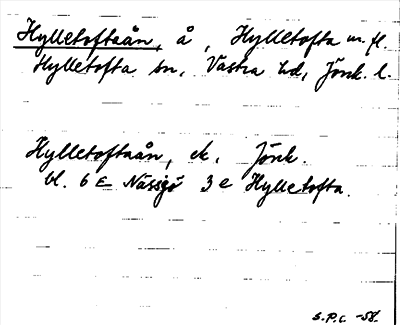 Hylletoftaån, å, Hylletofta m. fl.
Hylletofta sn, Västra hd, Jönk. l.
Hylletoftaån, ek. Jönk.
bl. 6 E Nässjö 3 e Hylletofta.
S.P.C. -58.